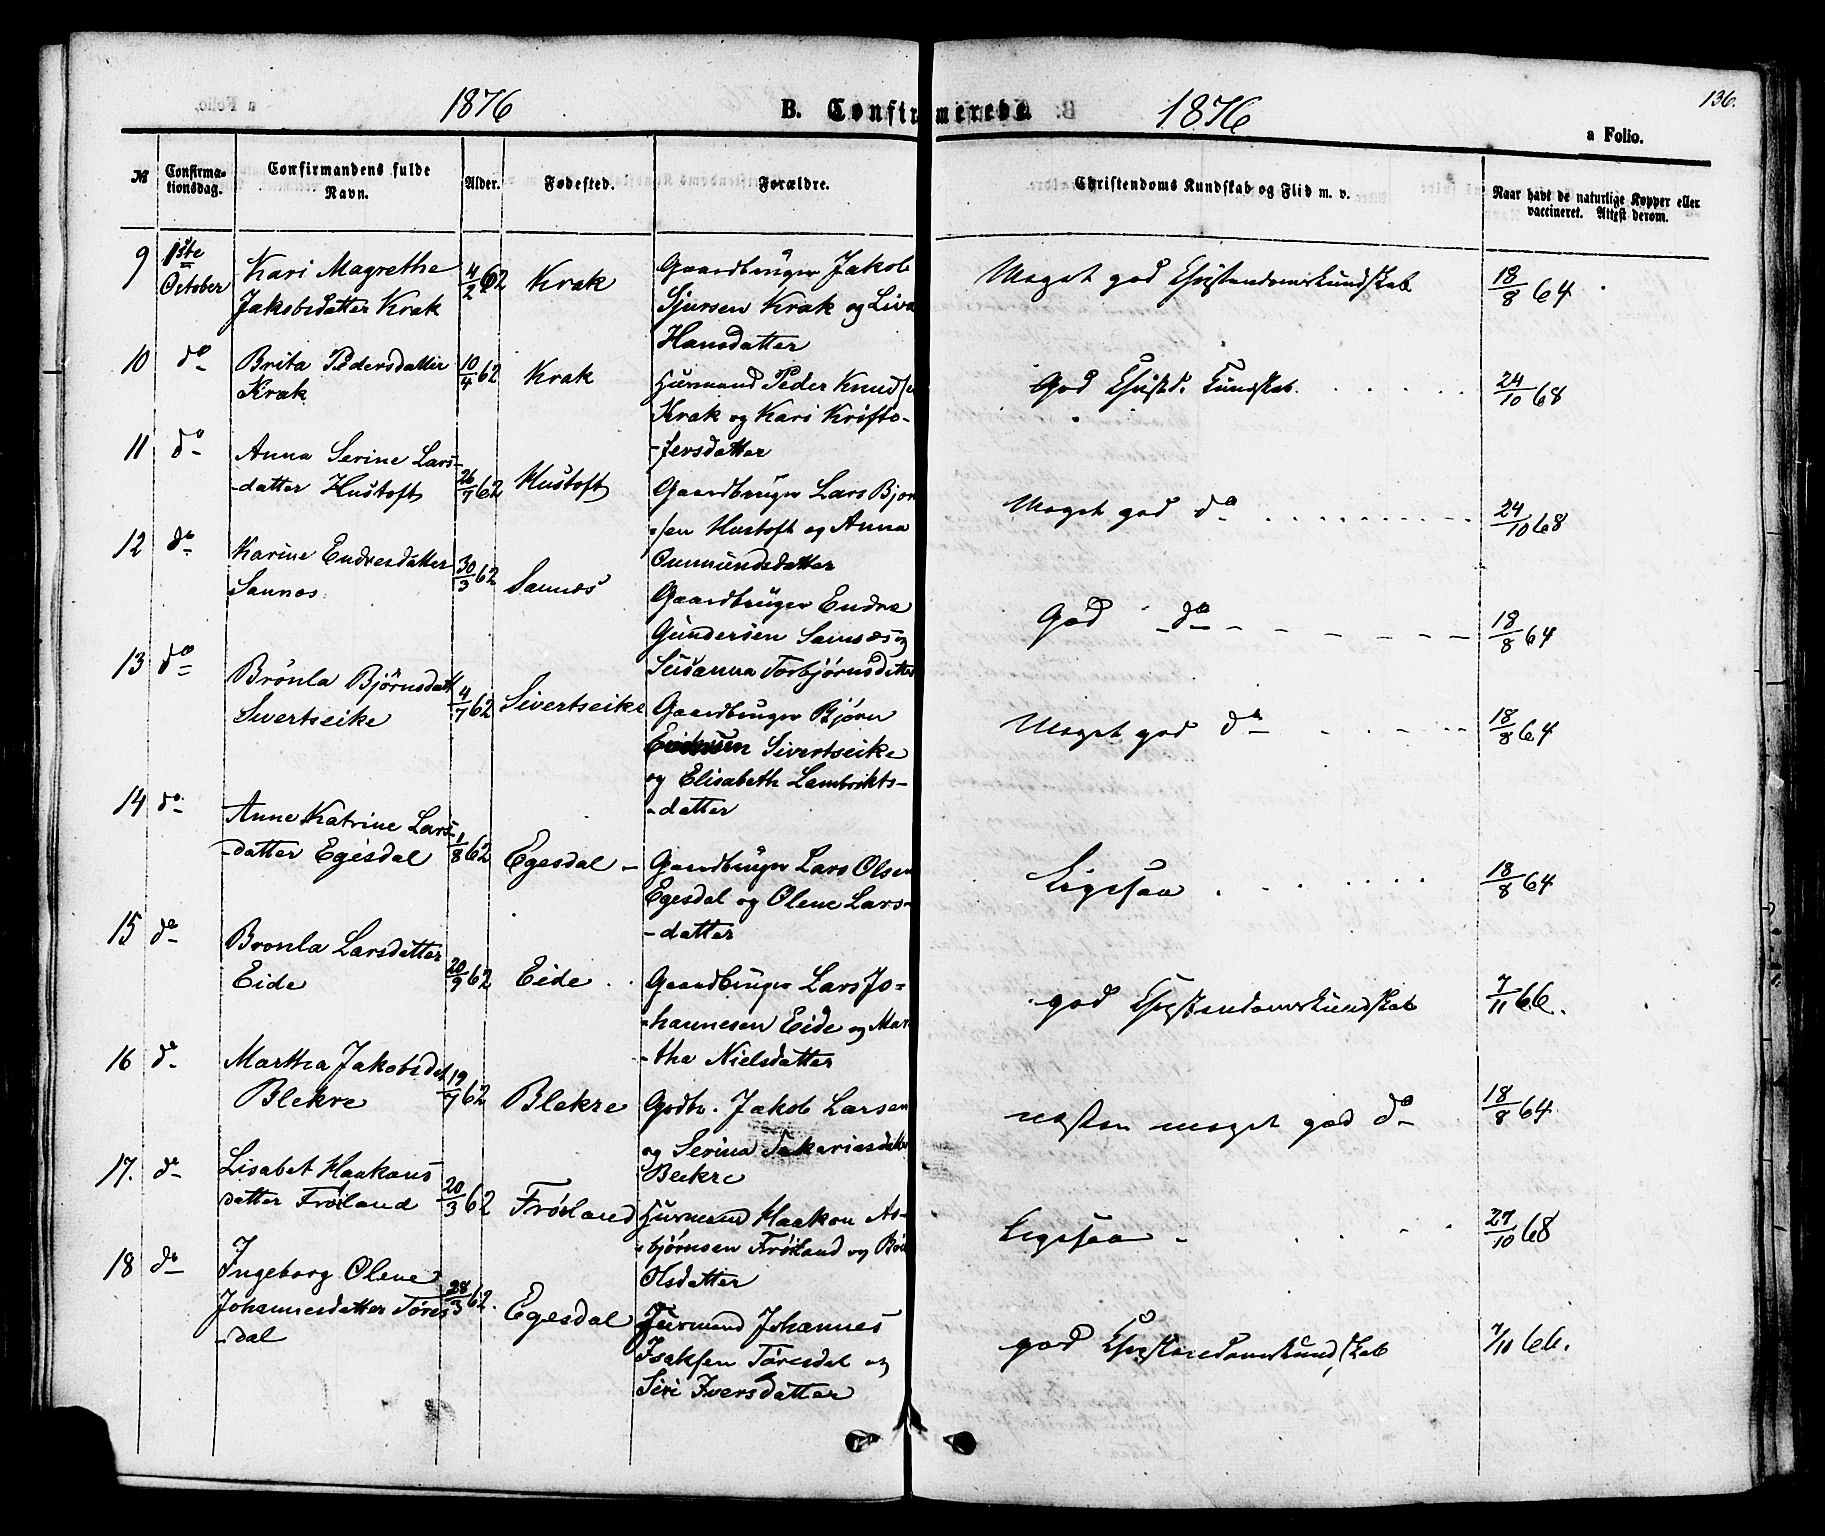 1876 B. Confirmerede. 1876 136.
a Folio.
№ Confirmationsdag. Confirmandens fulde Navn. Alder. Fødested. Forældre. Christendoms Kundskab og Flid m. v. Naar havt de naturlige Kopper eller vaccineret. Attest derom.
9 1ste Kari Magrethe 4/2 62 Krak Gaardbruger Jakob Meget god Christendomskundskab 18/8 64
October Jakobsdatter Krak Sjursen Krak og Liva
Hansdatter
10 do Brita Pedersdatter 10/4 62 Krak Huusmand Peder Knudsen God Christd. Kundskab 24/10 68
Krak Krak og Kari Kristo-
-fersdatter
11 do Anna Serine Lars- 26/7 62 Hustoft Gaardbruger Lars Bjør Meget god do 24/10 68
-datter Hustoft -sen Hustoft og Anna
Ommundsdatter
12 do Karine Endresdatter 30/3 62 Sannæs Gaardbruger Endre God do 18/8 64
Sannæs Gundersen Sannæs og
Susanna Torbjørnsdatter
13 do Brønla Bjørnsdatt 4/7 62 Sivertseike Gaardbruger Bjørn Meget god do 18/8 64
Sivertseike Sivertseike
og Elisabeth Lambrikts-
-datter
14 do Anne Katrine Lars- 1/8 62 Egesdal Gaardbruger Lars Olsen Ligesaa 18/8 64
-datter Egesdal Egesdal og Olene Lars-
-datter
15 do Bronla Larsdatter 20/9 62 Eide Gaardbruger Lars Jo- god Christendomskundskab 7/11 66.
Eide -hannesen Eide og Mar
-tha Nielsdatter
16 do Martha Jakobsdat 19/7 62 Blekre Gdbr. Jakob Larsen næsten meget god do 18/8 64
Blekre og Serina Sakariasdatter
Blekre
17. do Lisabet Haakons 20/3 62 Frøiland Huusmand Haakon As- Ligesaa 27/10 68
datter Frøiland -bjørnsen Frøiland og
Olsdatter
18 do Ingeborg Olene 28/3 62. Egesdal Huusmand Johannes god Christendomskundskab 7/11 66.
Johannesdatter Tøres Isaksen Tøresdal og
-dal Siri Iversdatter